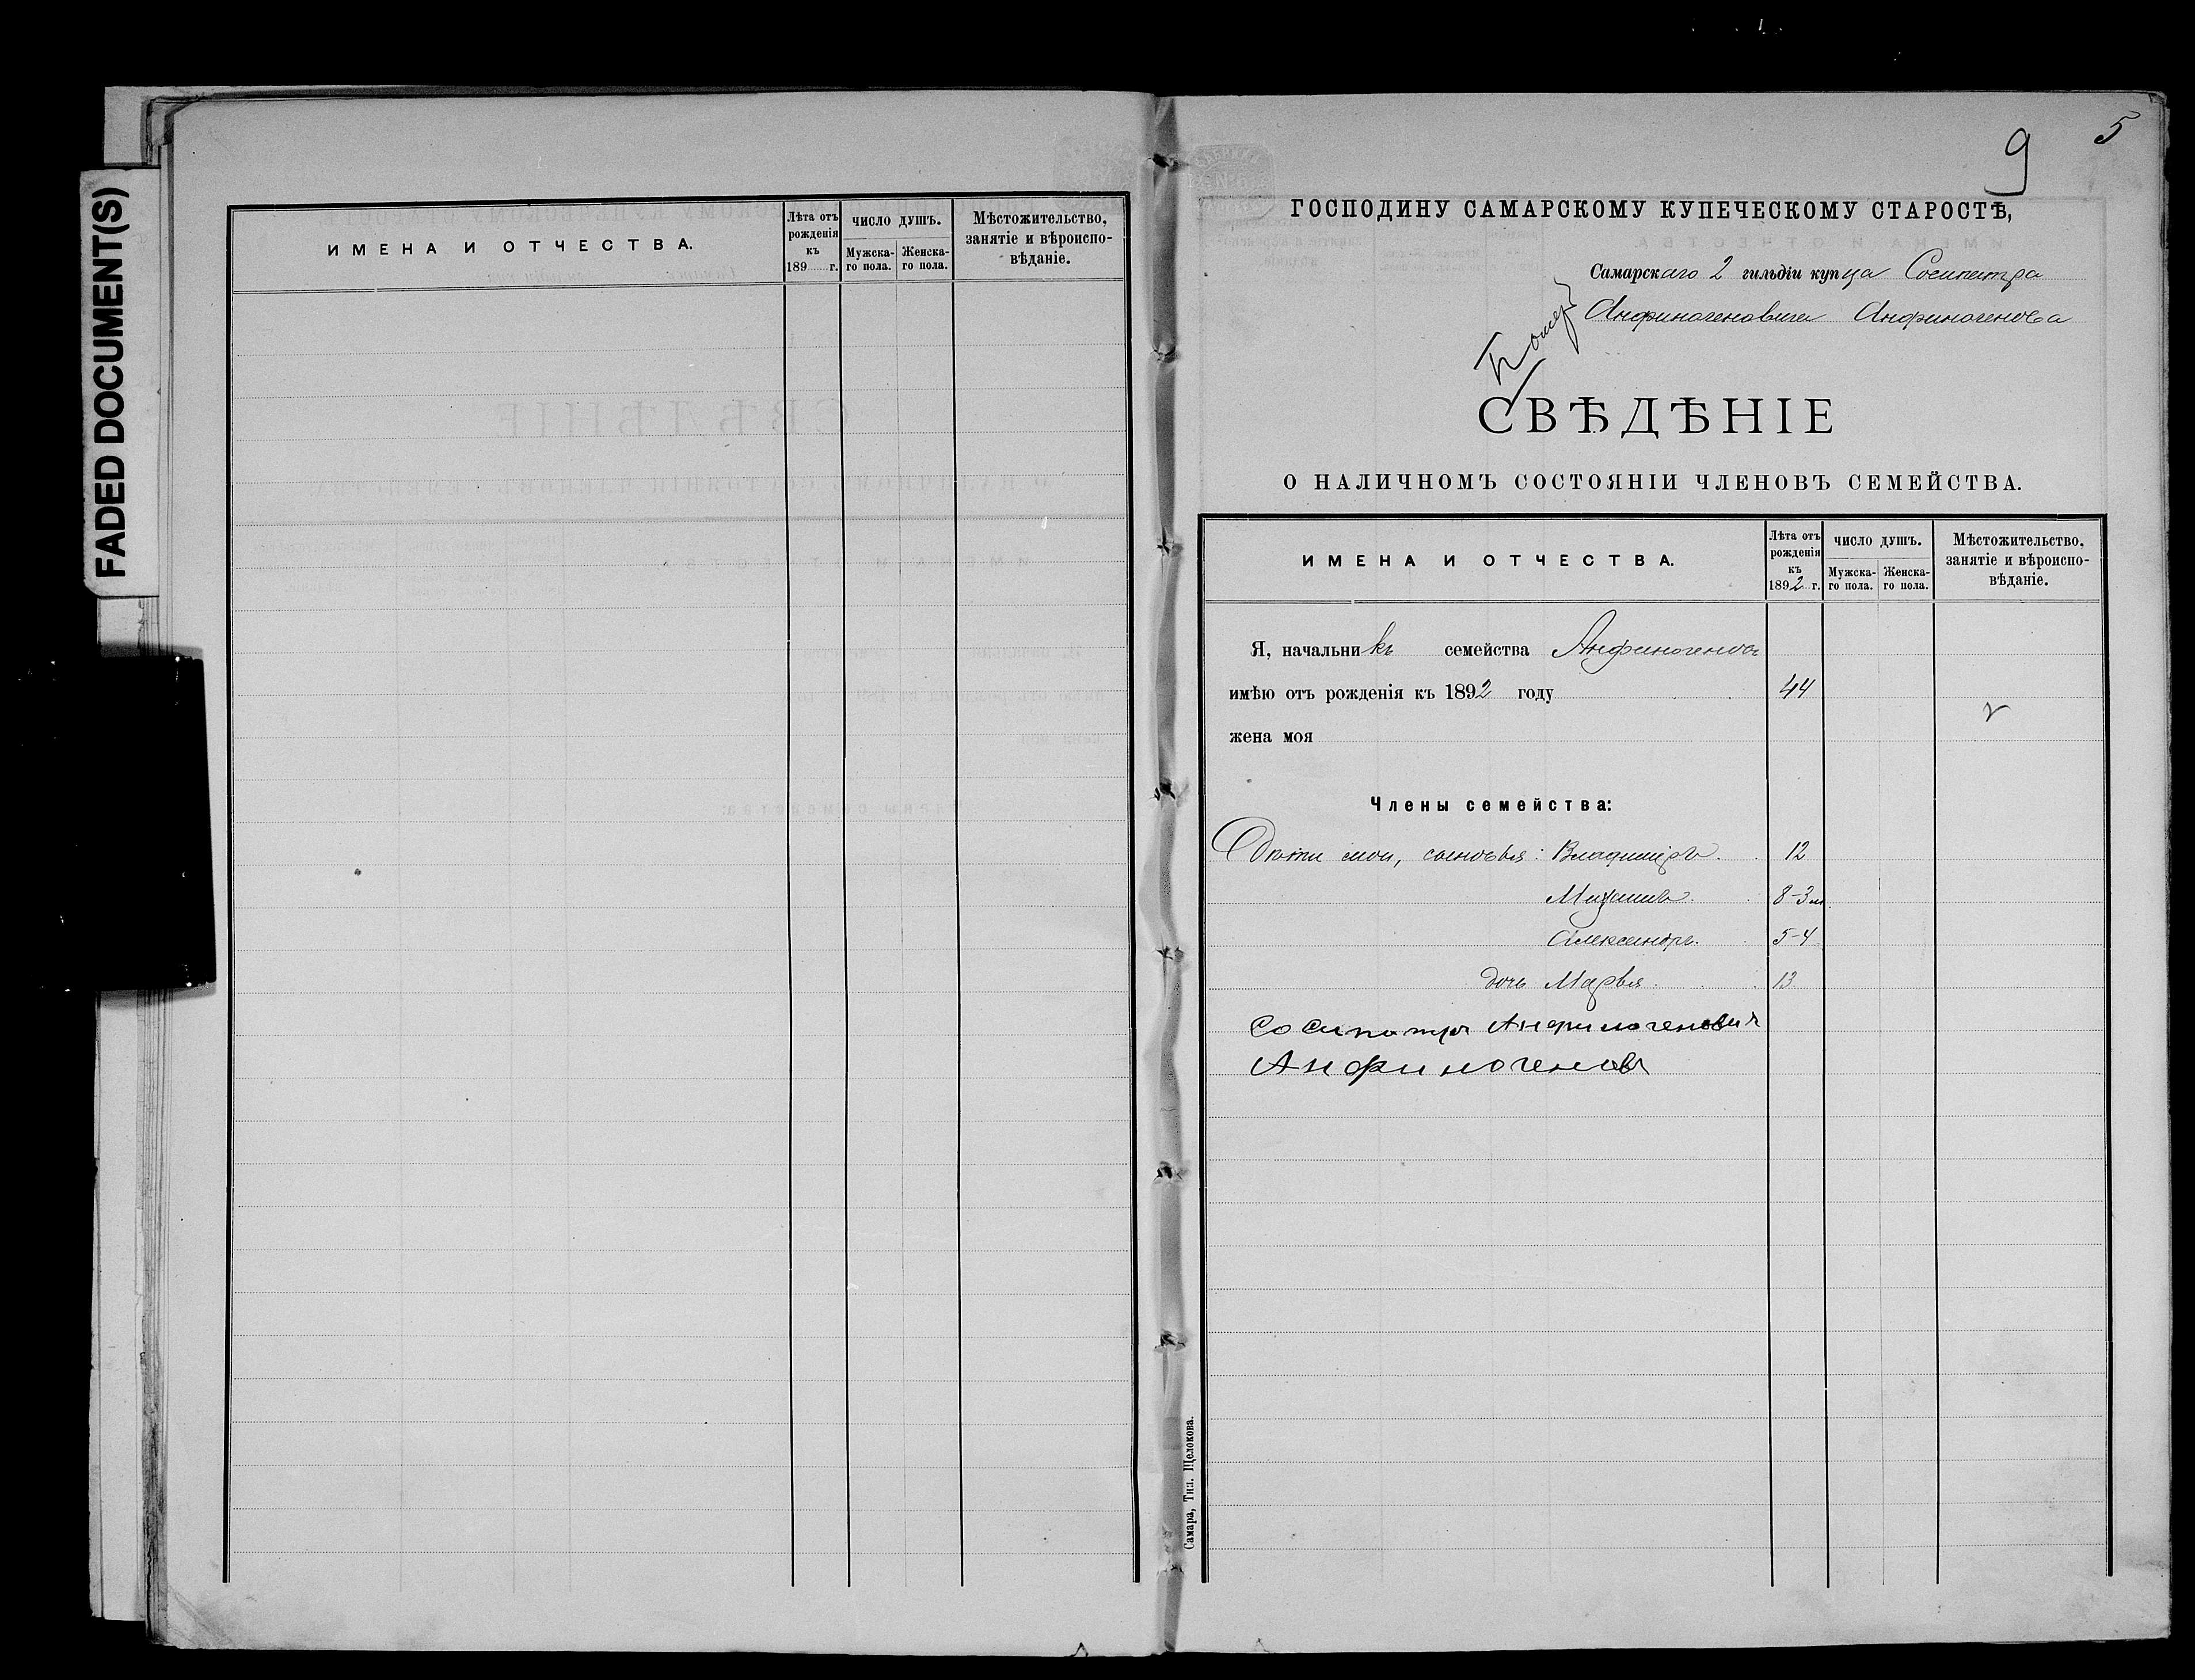 FADED DOCUMENT(S)
ИМЕНА И ОТЧЕСТВА.
Лѣта отъ рожденія къ 189 г.
ЧИСЛО ДУШЪ.
Мужска-го пола.
Женска-го пола.
Мѣстожительство, занятіе и вѣроиспо-вѣданіе.
5
9
ГОСПОДИНУ САМАРСКОМУ КУПЕЧЕСКОМУ СТАРОСТѢ,
Самарскаго 2 гильдіи купца Сосипатра
Анфиногеновича Анфиногенова
СВѢДѢНІЕ
О НАЛИЧНОМЪ СОСТОЯНІИ ЧЛЕНОВЪ СЕМЕЙСТВА.
ИМЕНА И ОТЧЕСТВА.
Лѣта отъ рожденія къ 1892 г.
ЧИСЛО ДУШЪ.
Мужска-го пола.
Женска-го пола.
Мѣстожительство, занятіе и вѣроиспо-вѣданіе.
Я, начальникъ семейства Анфиногеновъ
имѣю отъ рожденія къ 1892 году 44
жена моя
Члены семейства:
Дѣти мои, сыновья: Владиміръ. 12
Михаилъ. 8-3 м.
Александръ. 5-4
дочь Марья. 13
Сосипатръ Анфиногеновичъ
Анфиногеновъ
Самара, Тип. Щелокова.